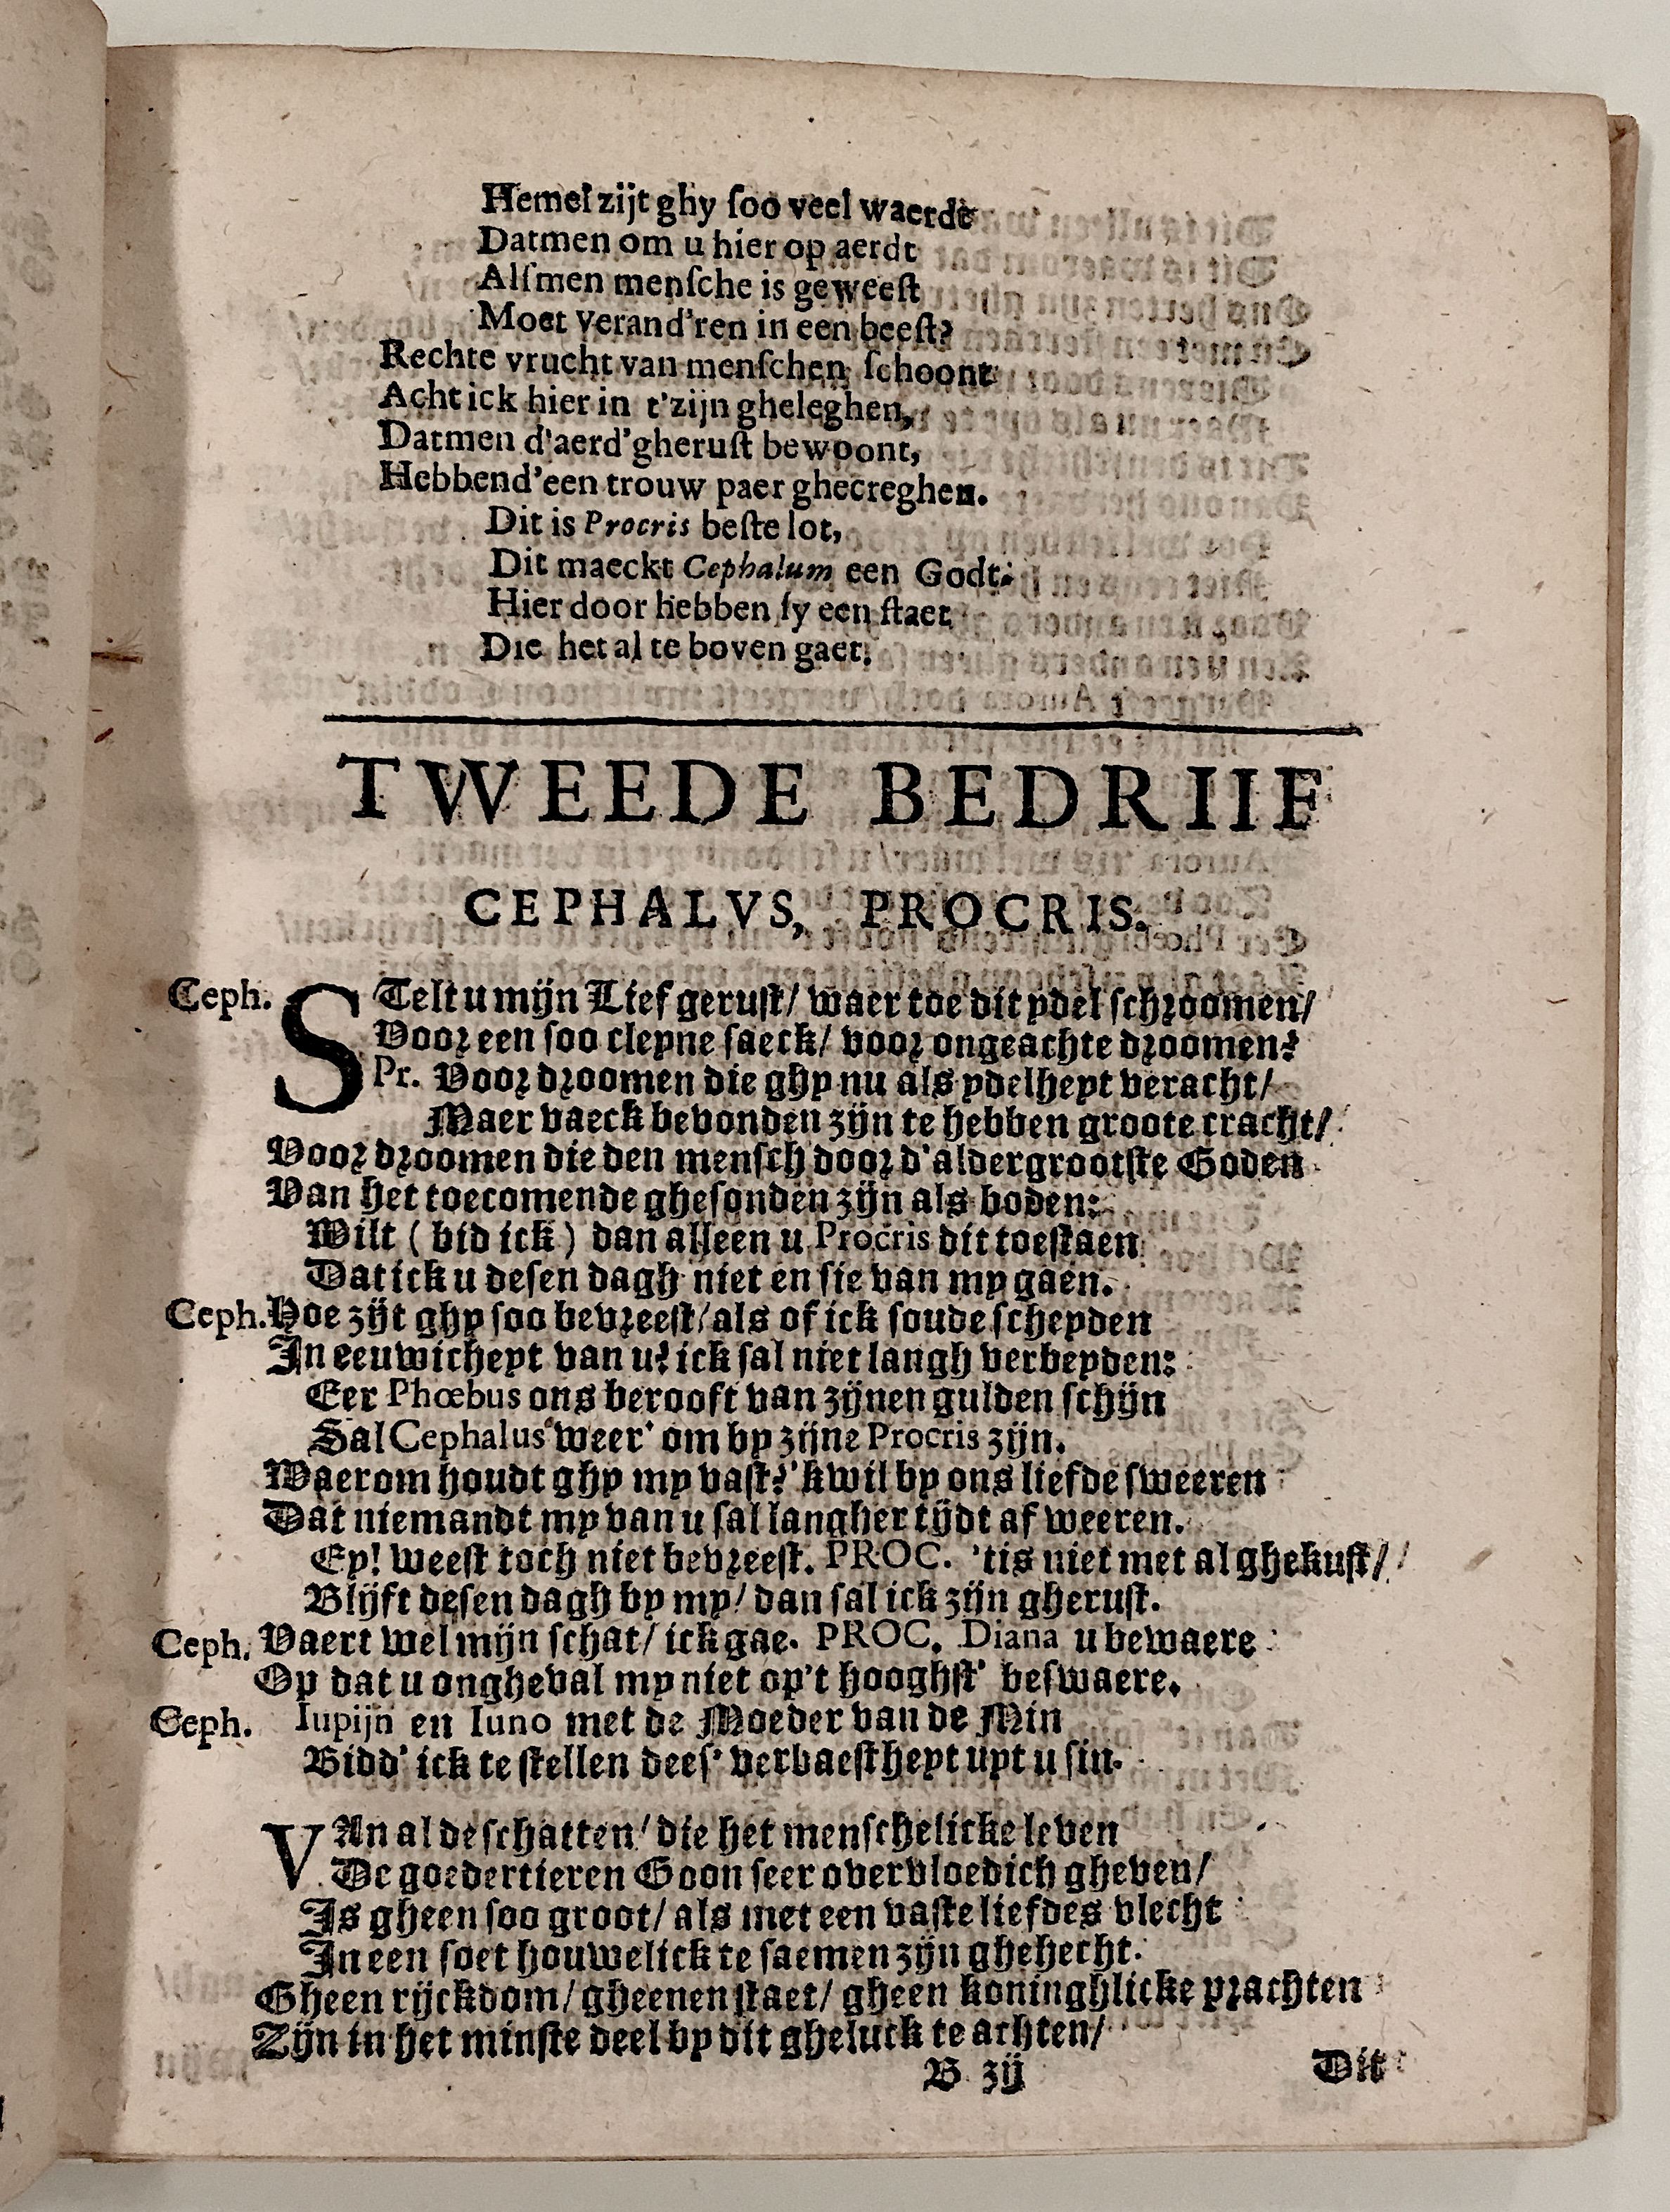 Hemel zijt ghy ſoo veel waerde
Datmen om u hier op aerdt
Alſmen menſche is geweeſt
Moet verand'ren in een beeſt?
Rechte vrucht van menſchen ſchoont
Acht ick hier in t'zijn gheleghen,
Datmen d'aerd'gheruſt bewoont,
Hebbend'een trouw paer ghecreghen.
Dit is Procris beſte lot,
Dit maeckt Cephalum een Godt:
Hier door hebben ſy een ſtaet
Die het al te boven gaet.
TWEEDE BEDRIIF
CEPHALVS, PROCRIS.
Ceph. STelt u mijn Lief geruſt/ waer toe dit ydel ſchroomen/
Voor een ſoo cleyne ſaeck/ voor ongeachte droomen?
Pr. Voor droomen die ghy nu als ydelheyt veracht/
Maer vaeck bevonden zijn te hebben groote cracht/
Voor droomen die den menſch door d'aldergrootſte Goden
Van het toecomende gheſonden zijn als boden:
Wilt (bid ick) dan alleen u Procris dit toeſtaen
Dat ick u deſen dagh niet en ſie van my gaen.
Ceph. Hoe zijt ghy ſoo bevreeſt/ als of ick ſoude ſcheyden
In eeuwicheyt van u? ick ſal niet langh verbeyden:
Eer Phœbus ons berooft van zijnen gulden ſchijn
Sal Cephalus weer' om by zijne Procris zijn.
Waerom houdt ghy my vaſt? 'kwil by ons liefde ſweeren
Dat niemandt my van u ſal langher tijdt af weeren.
Ey! weeſt toch niet bevreeſt. PROC. 'tis niet met al ghekuſt/
Blijft deſen dagh by my/ dan ſal ick zijn gheruſt.
Ceph. Vaert wel mijn ſchat/ ick gae. PROC. Diana u bewaere
Op dat u ongheval my niet op't hooghſt' beſwaere.
Ceph. Iupijn en Iuno met de Moeder van de Min
Bidd' ick te ſtellen deeſ' verbaeſtheyt uyt u ſin.
VAn al de ſchatten/ die het menſchelicke leven
De goedertieren Goon ſeer overvloedich gheven/
Is gheen ſoo groot/ als met een vaſte liefdes vlecht
In een ſoet houwelick te ſaemen zijn ghehecht.
Gheen rijckdom/ gheenen ſtaet/ gheen koninghlicke prachten
Zijn in het minſte deel by dit gheluck te achten/
B iij Dit